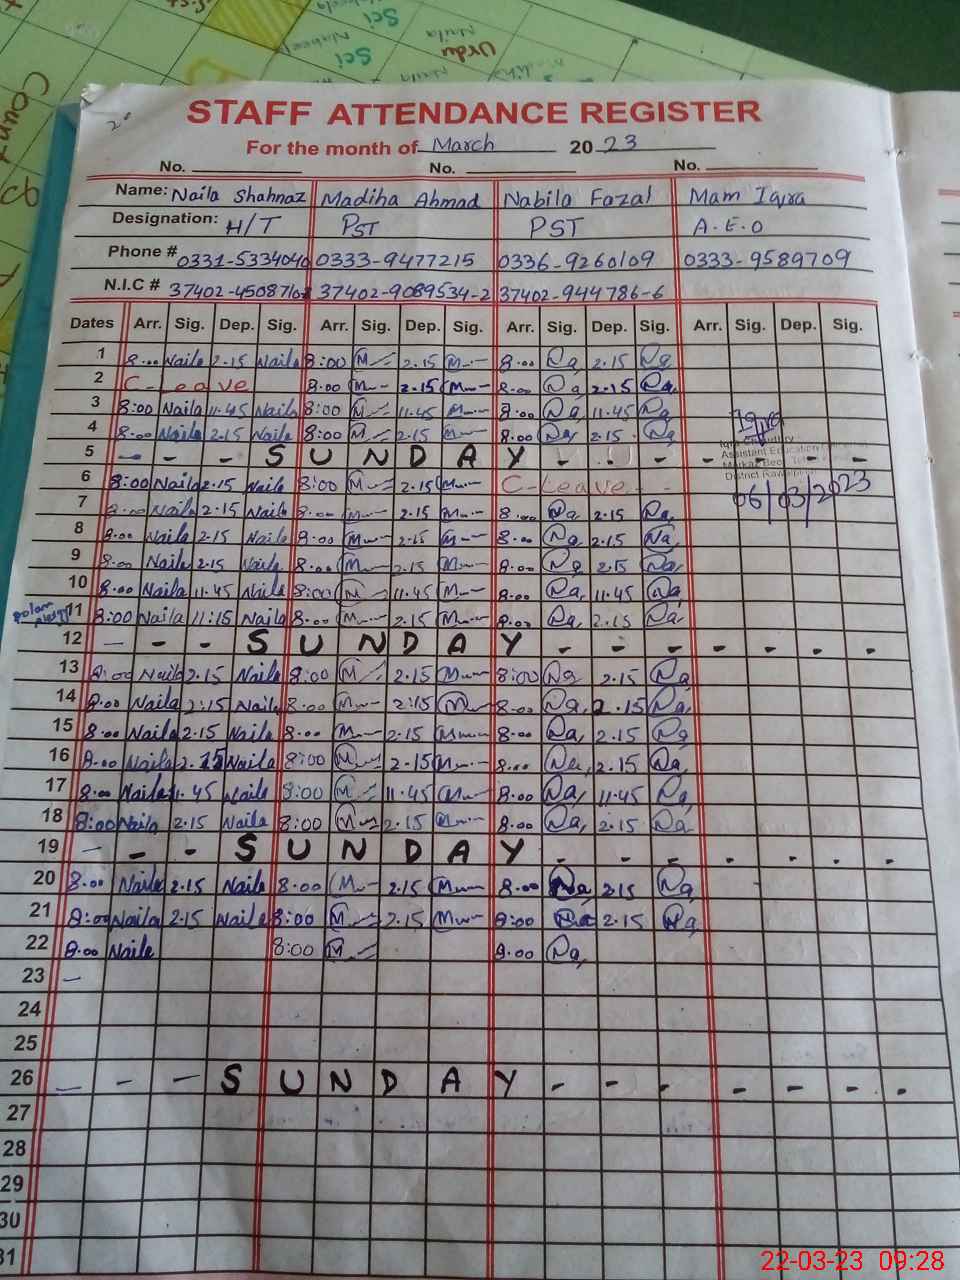 Sci
Naila
Urdu
Sci
STAFF ATTENDANCE REGISTER
For the month of March 20 23
No. No. No.
Name: Naila Shahnaz Madiha Ahmad Nabila Fazal Mam Iqra
Designation: H/T PST PST A.E.O
Phone # 0331-5334040 0333-9477215 0336-9260109 0333-9589709
N.I.C # 37402-4508716-8 37402-9089534-2 37402-944786-6
Dates Arr. Sig. Dep. Sig. Arr. Sig. Dep. Sig. Arr. Sig. Dep. Sig. Arr. Sig. Dep. Sig.
1 8.00 Naila 2.15 Naila 8:00 M 2.15 M 8.00 Na 2.15 Na
2 C-Leave 8.00 M 2.15 M 8.00 Na 2.15 Na
3 8:00 Naila 11.45 Naila 8:00 M 11.45 M 8:00 Na 11.45 Na
4 8.00 Naila 2.15 Naila 8:00 M 2.15 M 8.00 Na 2.15 Na
Iqra
5 - - - S U N D A Y - - - - - - -
Assistant Education
District
6 8:00 Naila 2.15 Naila 8:00 M 2.15 M C-Leave - -
06/03/2023
7 8.00 Naila 2.15 Naila 8.00 M 2.15 M 8.00 Na 2.15 Na
8 8.00 Naila 2.15 Naila 8.00 M 2.15 M 8.00 Na 2.15 Na
9 8.00 Naila 2.15 Naila 8.00 M 2.15 M 8.00 Na 2.15 Na
10 8.00 Naila 11.45 Naila 8:00 M 11.45 M 8.00 Na 11.45 Na
11 8:00 Naila 11:15 Naila 8.00 M 2.15 M 8.00 Na 2.15 Na
12 - - - S U N D A Y - - - - - - -
13 8:00 Naila 2.15 Naila 8:00 M 2.15 M 8:00 Na 2.15 Na
14 8.00 Naila 2:15 Naila 8.00 M 2:15 M 8.00 Na 2.15 Na
15 8.00 Naila 2.15 Naila 8.00 M 2.15 M 8.00 Na 2.15 Na
16 8.00 Naila 2.15 Naila 8:00 M 2.15 M 8.00 Na 2.15 Na
17 8.00 Naila 11.45 Naila 8:00 M 11.45 M 8.00 Na 11.45 Na
18 8:00 Naila 2.15 Naila 8:00 M 2.15 M 8.00 Na 2.15 Na
19 - - - S U N D A Y - - - - - - -
20 8.00 Naila 2.15 Naila 8.00 M 2.15 M 8.00 Na 2.15 Na
21 8:00 Naila 2.15 Naila 8:00 M 2.15 M 8:00 Na 2.15 Na
22 8.00 Naila 8:00 M 8.00 Na
23 -
24
25
26 - - - S U N D A Y - - - - - - -
27
28
29
30
31
22-03-23 09:28